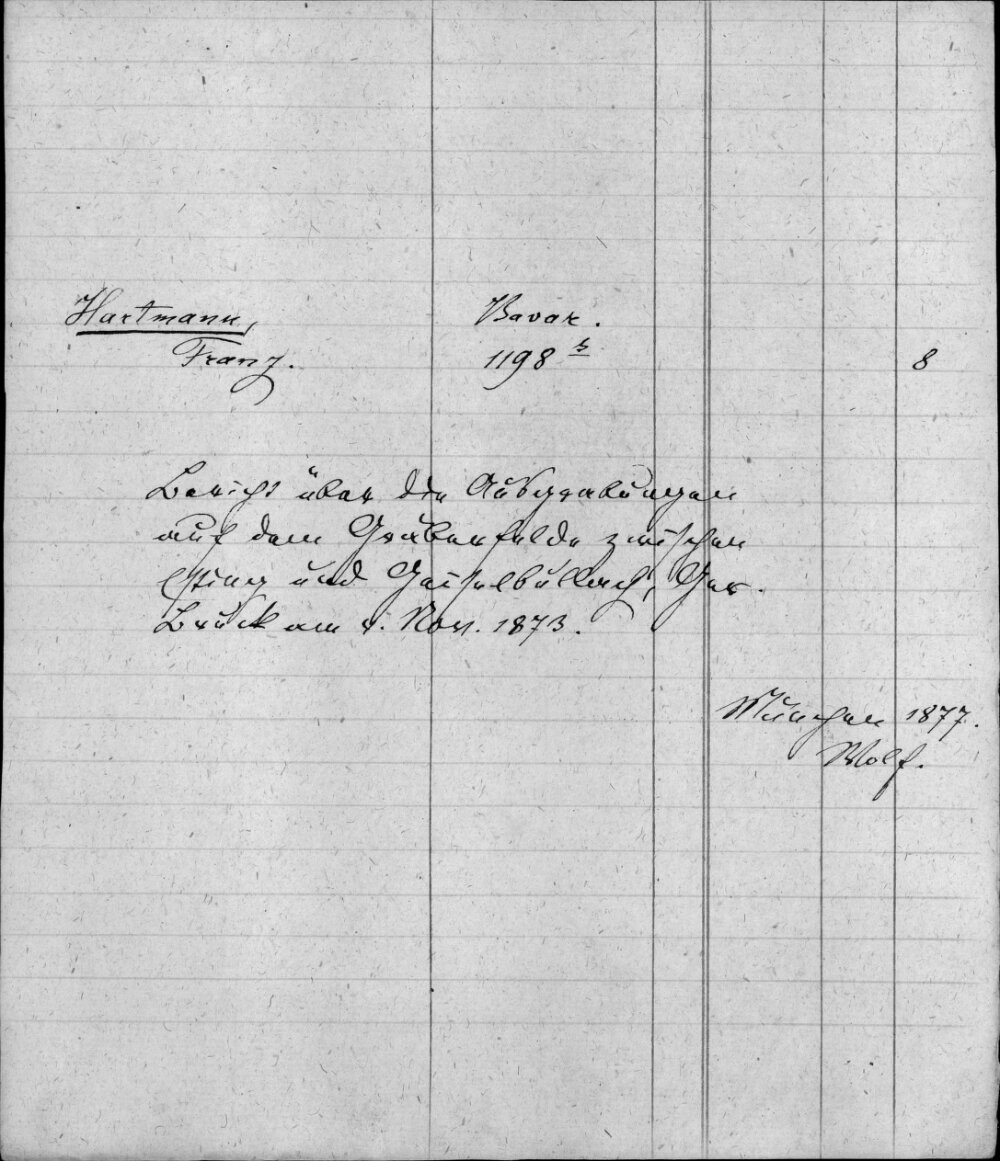 Hartmann, Bavar.
Franz. 1198 s 8
Bericht über die Ausgrabungen
auf dem Gräberfelde zwischen
Esting und Geiselbullach, Ger.
Bruck am Nov. 1873.
München 1877.
Wolf.